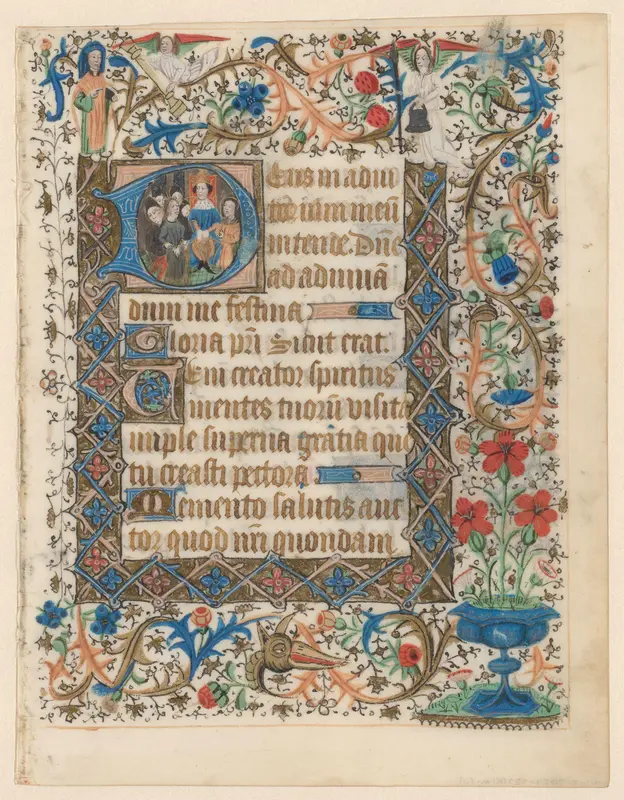 DEus in adiu
torium meū
intende. Dn̄e
ad adiuuā
dum me festina
Gloria pr̄i Sicut erat.
VEni creator spiritus
mentes tuorū visita
imple superna gratia que
tu creasti pectora
Memento salutis auc
tor quod nr̄i quondam